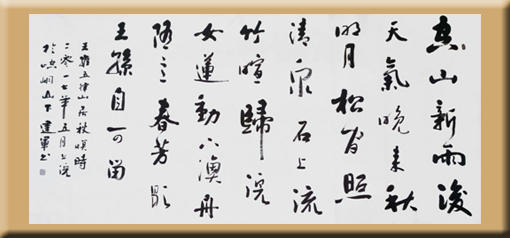 空山新雨後
天氣晚來秋
明月松間照
清泉石上流
竹喧歸浣
女蓮動下漁舟
随意春芳歇
王孫自可留
王維五律山居秋暝詩
二零一七年五月上浣
於崆峒山下建軍书